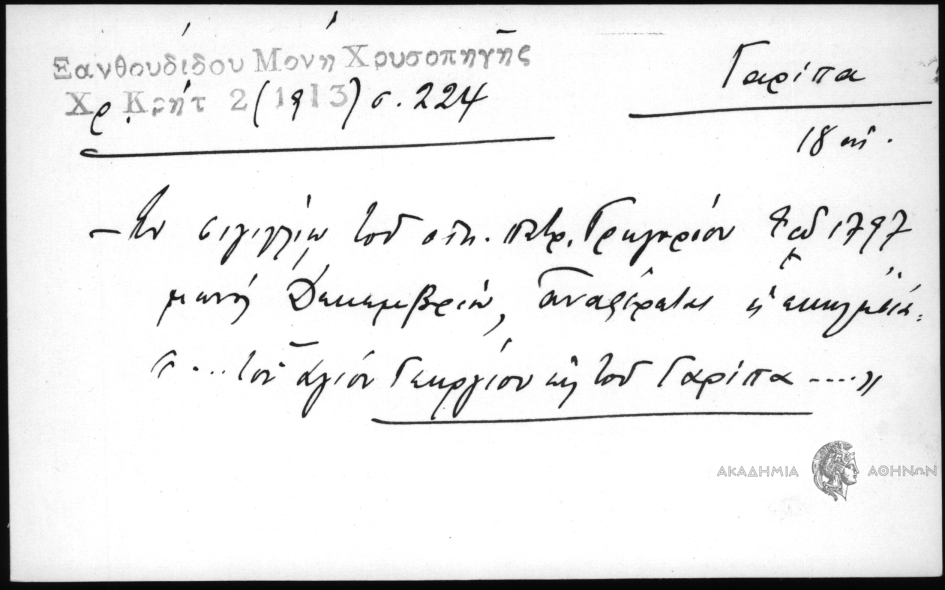 Ξανθουδίδου Μονή Χρυσοπηγῆς
Χρ. Κρήτ 2 (1913) σ. 224
Γαρίπα
18 αἰ.
Ἐν σιγιλλίῳ τοῦ οἰκ. πατρ. Γρηγορίου τοῦ 1797
μηνός Δεκεμβρίῳ, ἀναφέρεται ἡ ἐκκλησία:
« ... τοῦ ἁγίου Γεωργίου εἰς τοῦ Γαρίπα ....»
ΑΚΑΔΗΜΙΑ ΑΘΗΝΩΝ